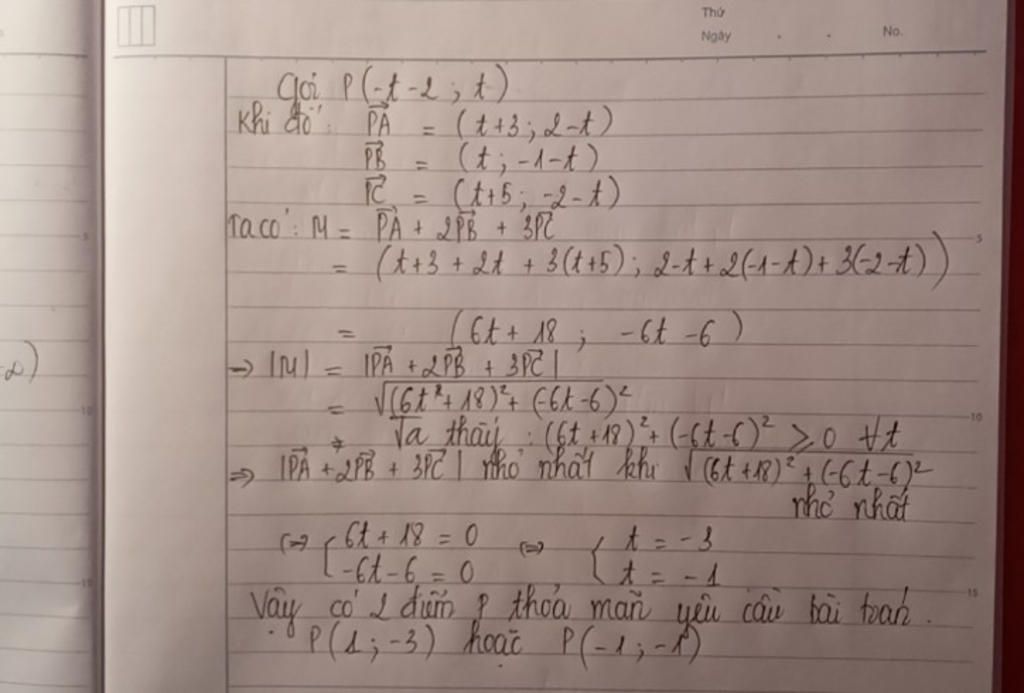 Thứ
Ngày . . No.
Gọi P(-t-2 ; t)
Khi đó: PA = (t+3 ; 2-t)
PB = (t ; -1-t)
PC = (t+5 ; -2-t)
Ta có: M = PA + 2PB + 3PC
= (t+3 + 2t + 3(t+5) ; 2-t+2(-1-t)+3(-2-t))
= (6t + 18 ; -6t - 6)
→ |M| = |PA + 2PB + 3PC|
= √(6t²+18)²+(-6t-6)²
* Ta thấy : (6t+18)²+(-6t-6)² ≥ 0 ∀t
⇒ |PA + 2PB + 3PC| nhỏ nhất khi √(6t+18)²+(-6t-6)²
nhỏ nhất
⇔ { 6t + 18 = 0 ⇔ { t = -3
-6t - 6 = 0 t = -1
Vậy có 2 điểm P thỏa mãn yêu cầu bài toán.
P(1 ; -3) hoặc P(-1 ; -1)
5
10
15
5
10
15